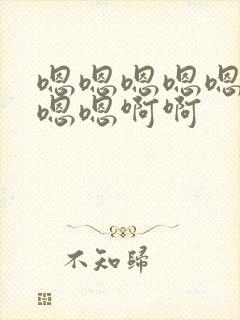 嗯嗯嗯嗯嗯
嗯嗯啊啊
不知歸